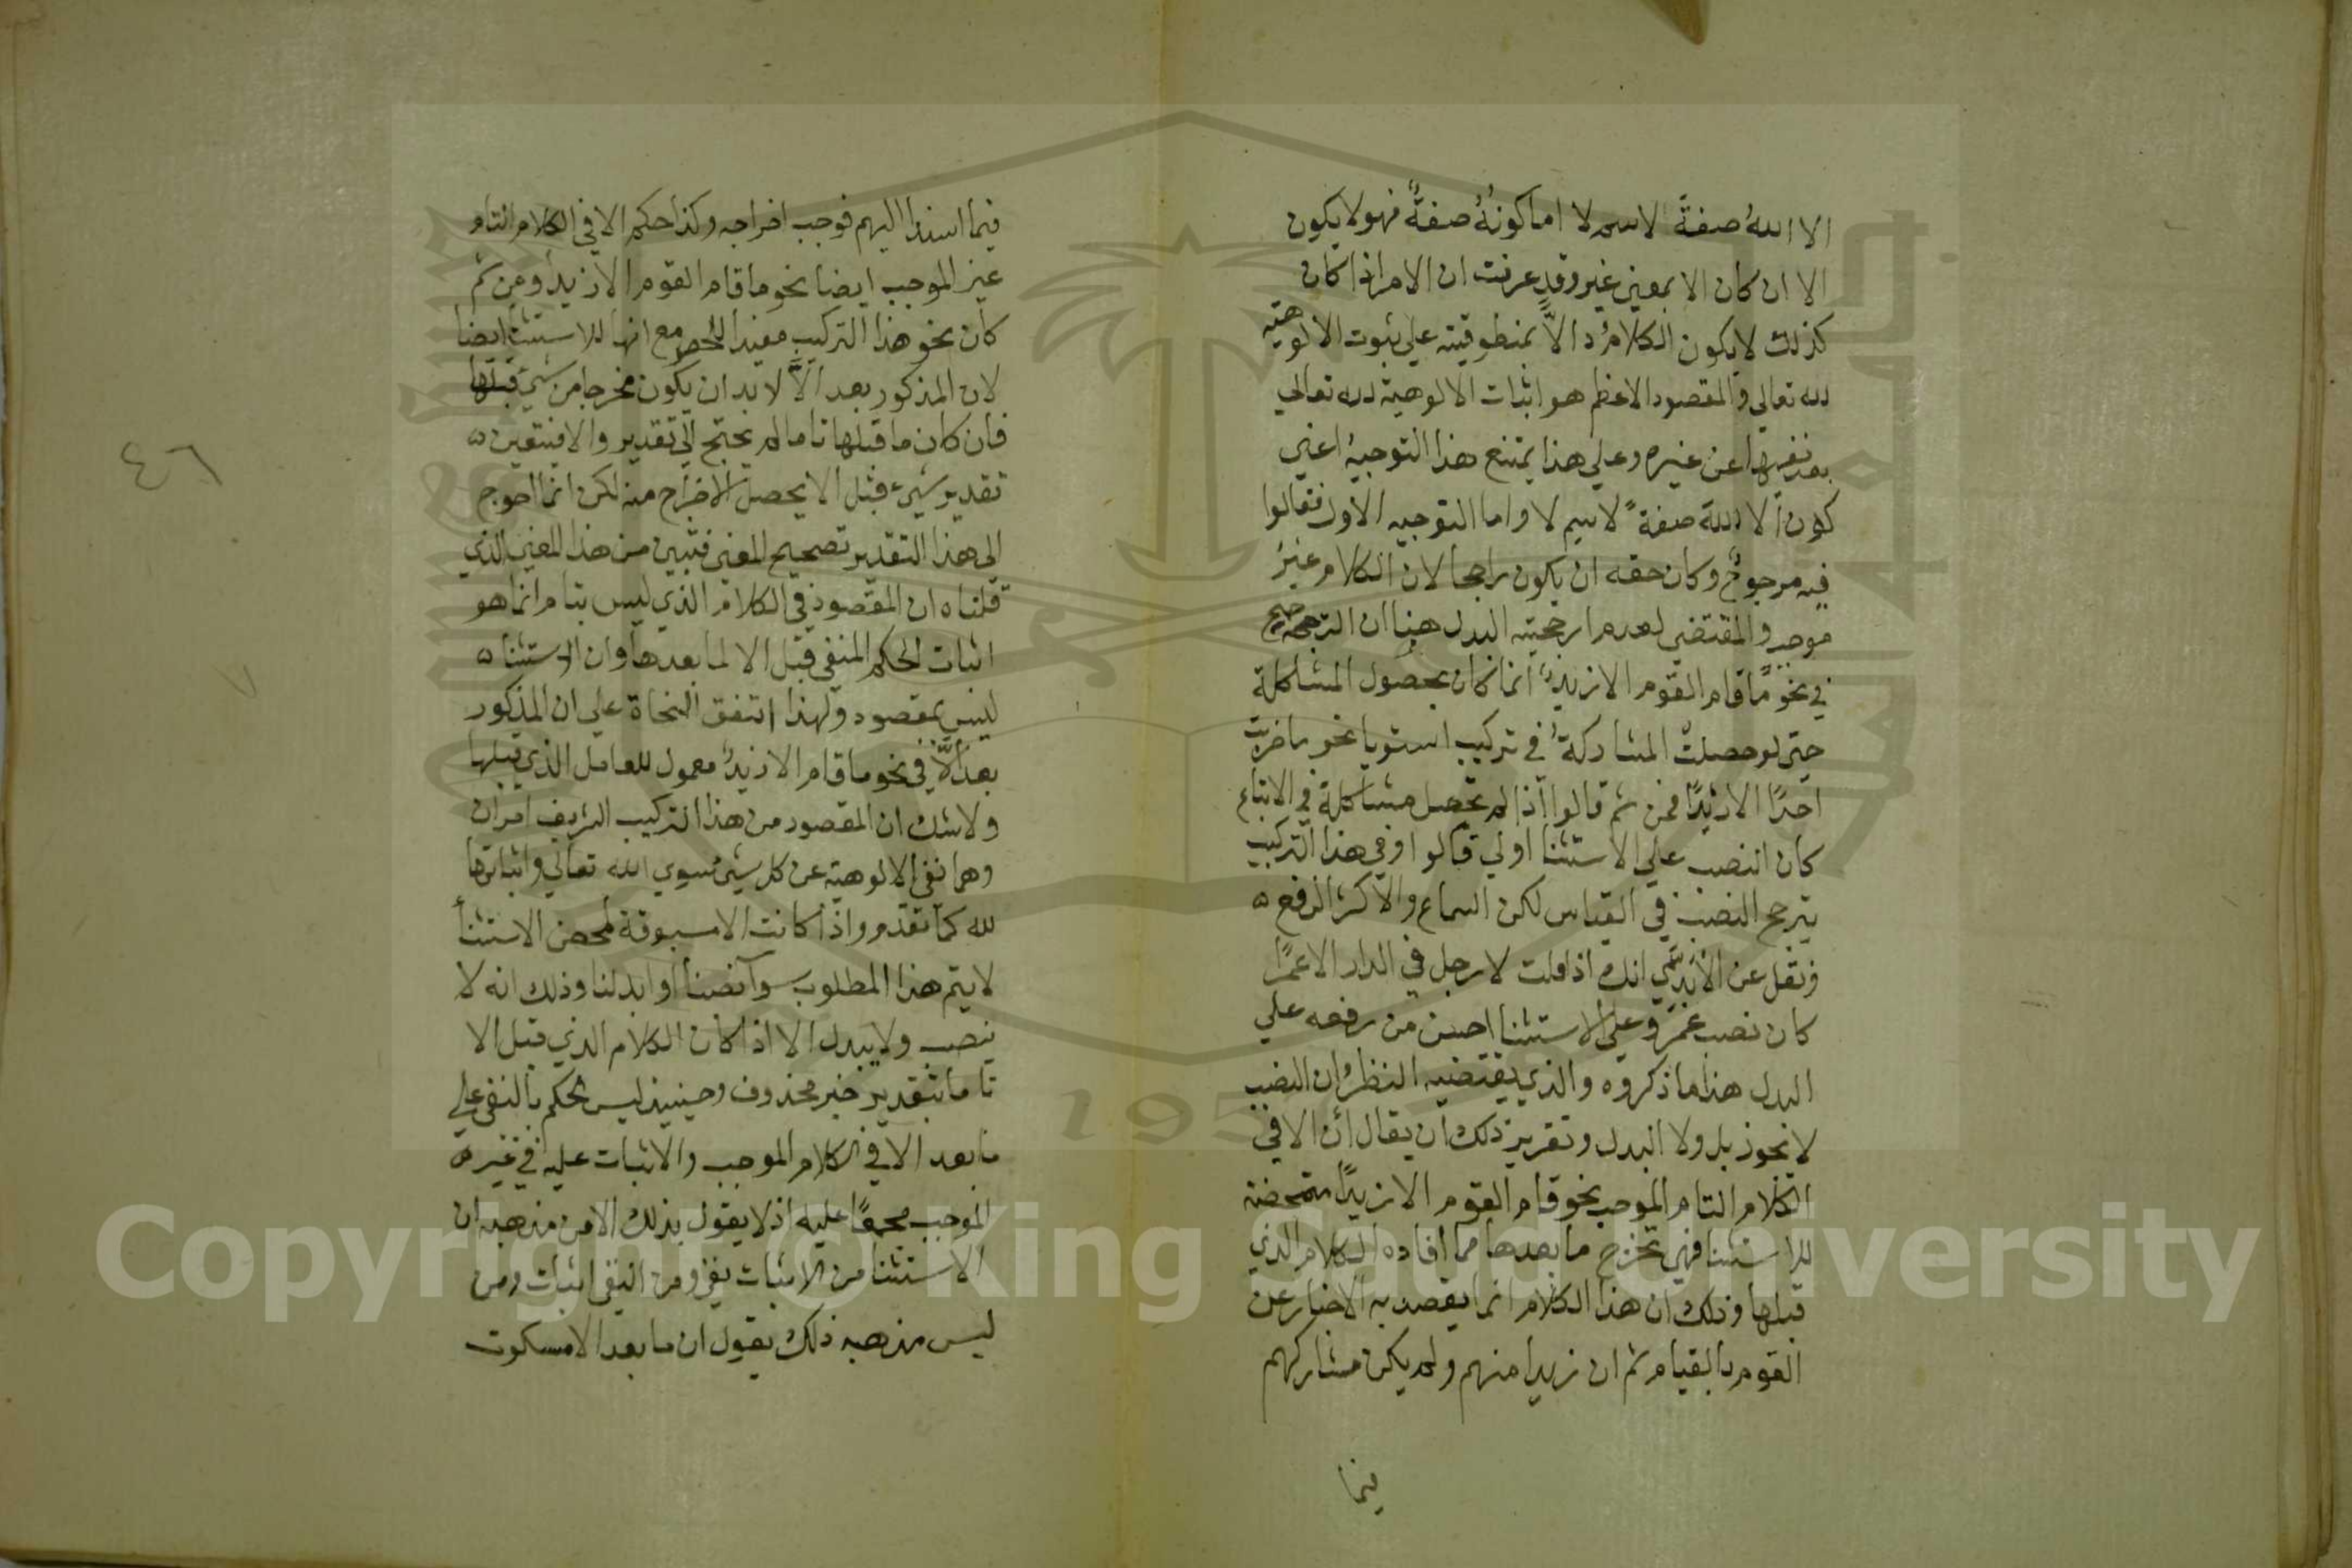 الا اللهُ صفةً لاسم لا اما كونهُ صفةً فهو لا يكون
الا ان كان الا بمعني غير وقد عرفت ان الامر اذا كان
كذلك لا يكون الكلامُ دالاًّ بمنطوقيته علي ثبوت الالوهية
لله تعالي والمقصود الاعظم هو اثبات الالوهية لله تعالي
بعد نفيها عن غيره وعلي هذا يمتنع هذا التوجيهُ اعني
كون الا اللهَ صفةً لاسم لا واما التوجيه الاول فقالوا
فيه مرجوحٌ وكان حقه ان يكون راجحا لان الكلام غيرُ
موجب والمقتضي لعدم ارجحيته البدل هنا ان الترجيح
في نحو ما قام القوم الا زيدٌ انما كان بحصول المشاكلة
حتي لو حصلت المشاركةُ في تركيب استويا نحو ما ضربتُ
احدًا الا زيدًا فمن ثم قالوا اذا لم تحصل مشاكلة في الاتباع
كان النصب علي الاستثنا اولي قالوا وفي هذا التركيب
يترجح النصب في القياس لكن السماع والاكثر الرفع ٥
ونقل عن الأبّدي انك اذا قلت لا رجل في الدار الا عمرًا
كان نصب عمرو علي الاستثنا احسن من رفعه علي
البدل هذا ما ذكروه والذي يقتضيه النظر ان النصب
لا يجوز بل ولا البدل وتقرير ذلك ان يقال أن الا في
الكلام التام الموجب نحو قام القوم الا زيدًا متمحضة
للاستثنا فهي تخرج ما بعدها مما افاده الكلام الذي
قبلها وذلك ان هذا الكلام انما يقصد به الاخبار عن
القوم بالقيام ثم ان زيدا منهم ولم يكن مشاركهم
فيما
فيما اسند اليهم فوجب اخراجه وكذا حكم الا في الكلام التام
غير الموجب ايضا نحو ما قام القوم الا زيدا ومن ثم
كان نحو هذا التركيب مفيدا للحصر مع انها للاستثنا ايضا
لان المذكور بعد الاَّ لا بد ان يكون مخرجا من شيء قبلها
فان كان ما قبلها تاما لم يحتج الي تقدير والا فيتعين ٥
تقدير شيء قبل الا يحصل الاخراج منه لكن انما احوج
الي هذا التقدير تصحيح المعني فتبين من هذا المعني الذي
قلناه ان المقصود في الكلام الذي ليس بتام انما هو
اثبات الحكم المنفي قبل الا لما بعدها وان الاستثنا ٥
ليس بمقصود ولهذا اتفق النحاة علي ان المذكور
بعد الاَّ في نحو ما قام الا زيدٌ معمول للعامل الذي قبلها
ولا شك ان المقصود من هذا التركيب الشريف امران
وهما نفي الالوهية عن كل شيء سوي الله تعالي واثباتها
لله كما تقدم واذا كانت الا مسبوقة لمحض الاستثنأ
لا يتم هذا المطلوب سوآ نصبنا او ابدلنا وذلك انه لا
ينصب ولا يبدل الا اذا كان الكلام الذي قبل الا
تاما بتقدير خبر محذوف وحينيذ ليس الحكم بالنفي علي
ما بعد الا في الكلام الموجب والاثبات عليه في غير
الموجب مجمعًا عليه اذ لا يقول بذلك الا من مذهبه ان
الاستثنا من الاثبات نفي ومن النفي اثبات ومن
ليس مذهبه ذلك يقول ان ما بعد الا مسكوت
٤٦
Copyright © King Saud University
195